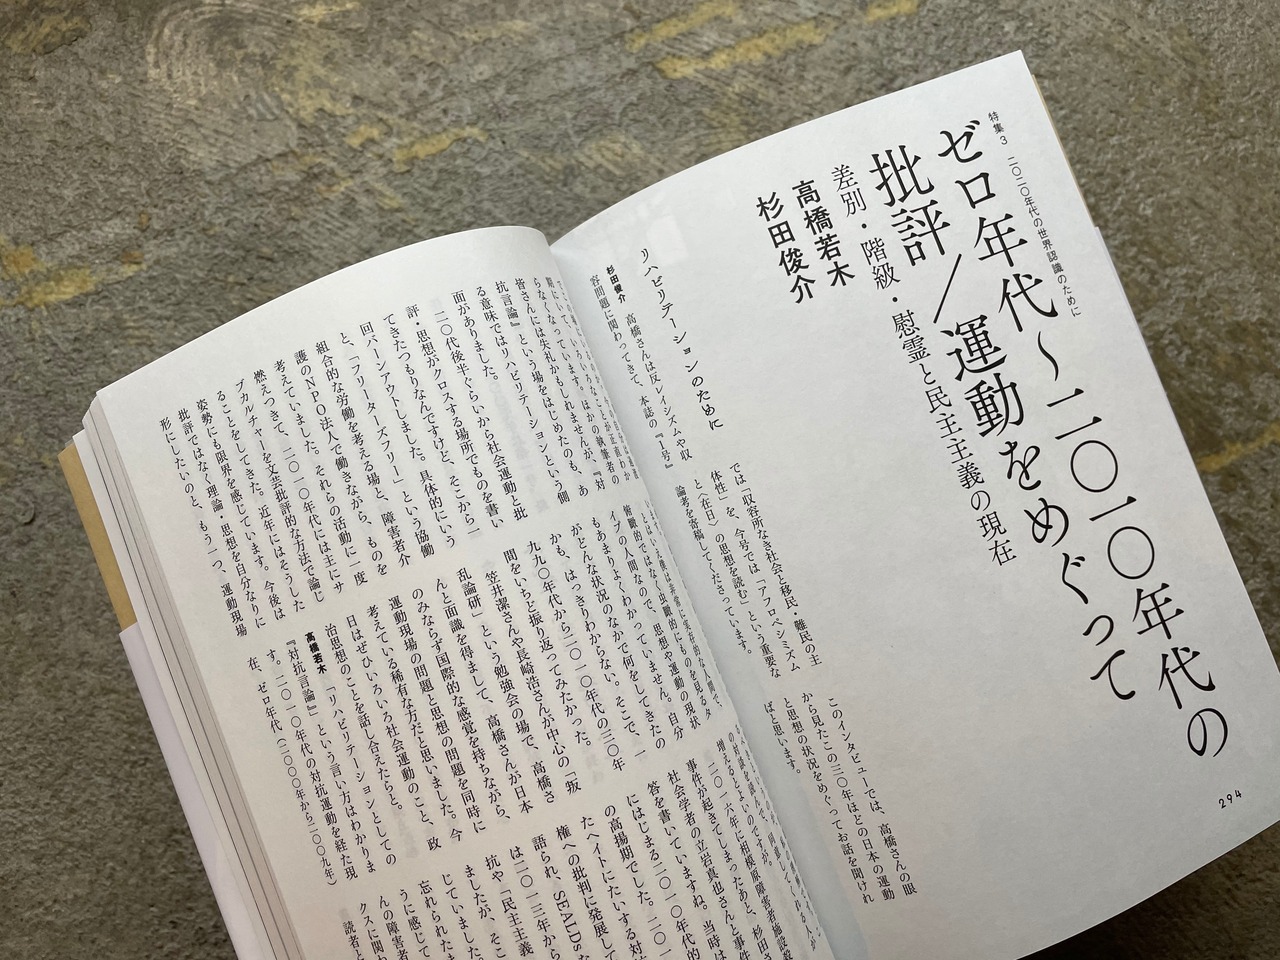 特集3 二〇二〇年代の世界認識のために
ゼロ年代〜二〇一〇年代の
批評／運動をめぐって
差別・階級・慰霊と民主主義の現在
高橋若木
杉田俊介
リハビリテーションのために
杉田俊介 高橋さんは反レイシズムや収
容問題に関わってきて、本誌の『1号』
では「収容所なき社会と移民・難民の主
体性」を、今号では「アフロペシミズム
と〈在日〉の思想を読む」という重要な
論考を寄稿してくださっています。
このインタビューでは、高橋さんの眼
から見たこの三〇年ほどの日本の運動
と思想の状況をめぐってお話を聞けれ
ばと思います。
294
らなくなっています。ほかの執筆者の
皆さんには失礼かもしれませんが、『対
抗言論』という場をはじめたのも、あ
る意味ではリハビリテーションという側
面がありました。
二〇年代後半ぐらいから社会運動と批
評・思想がクロスする場所でものを書い
てきたつもりなんですけど、そこから一
回バーンアウトしました。具体的にいう
と、「フリーターズフリー」という協働
組合的な労働を考える場と、障害者介
護のNPO法人で働きながら、ものを
考えていました。それらの活動に一度
燃えつきて、二〇一〇年代には主にサ
ブカルチャーを文芸批評的な方法で論じ
ることをしてきた。近年にはそうした
姿勢にも限界を感じています。今後は
批評ではなく理論・思想を自分なりに
形にしたいのと、もう一つ、運動現場
俯瞰的ではなく虫瞰的にものを見るタ
イプの人間なので、思想や運動の現状
もあまりよくわかっていません。自分
がどんな状況のなかで何をしてきたの
かも、はっきりわからない。そこで、一
九九〇年代から二〇一〇年代の三〇年
間をいちど振り返ってみたかった。
笠井潔さんや長崎浩さんが中心の「叛
乱論研」という勉強会の場で、高橋さ
んと面識を得まして、高橋さんが日本
のみならず国際的な感覚を持ちながら、
運動現場の問題と思想の問題を同時に
考えている稀有な方だと思いました。今
日はぜひいろいろ社会運動のこと、政
治思想のことを話し合えたらと。
高橋若木 「リハビリテーションとしての
『対抗言論』」という言い方はわかりま
す。二〇一〇年代の対抗運動を経た現
在、ゼロ年代（二〇〇〇年から二〇〇九年）
増えるとよいのですが。
二〇一六年に相模原障害者施設殺
事件が起きてしまったあと、杉田さ
社会学者の立岩真也さんと事件
答を書いていますね。当時は
にはじまる二〇一〇年代的
の高揚期でした。二〇一
たヘイトにたいする対
権への批判に発展して
語られ、SEALDsな
は二〇一三年から
抗や「民主主義
ましたが、そこ
じていました
忘れられたま
うに感じて
んの障害者
クスに関わ
読者と